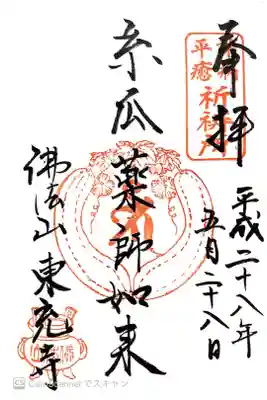 奉拝
平癒
祈祷
平成二十八年
五月二十八日
糸瓜薬師如来
佛法山東充寺
CamScanner でスキャン